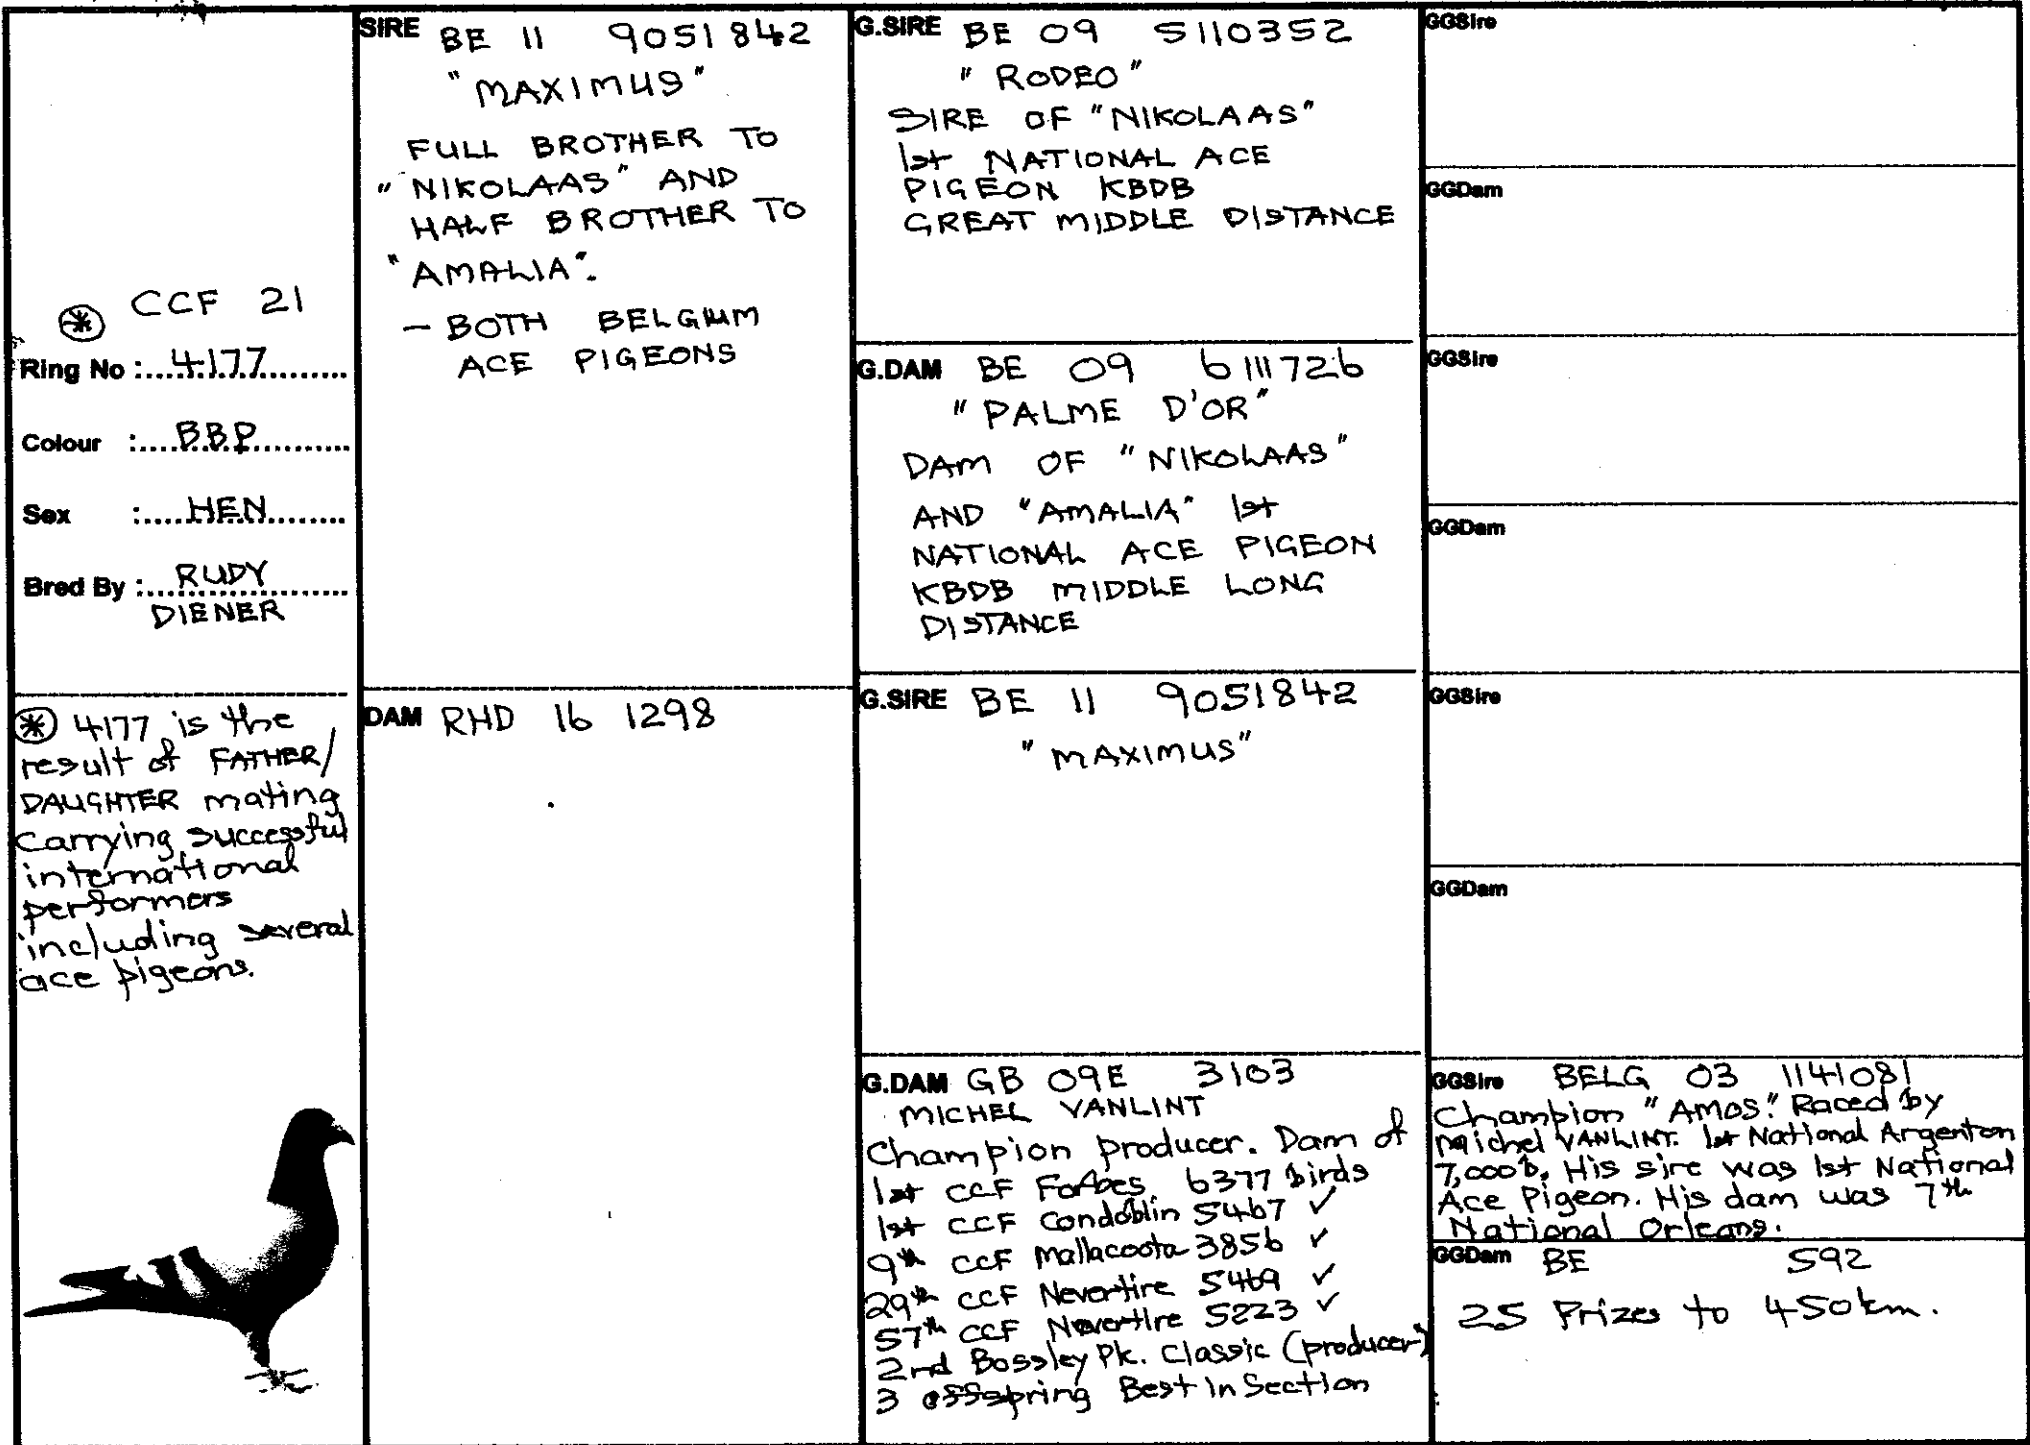 CCF 21
Ring No : 4177
Colour : BBP
Sex : HEN
Bred By : RUDY
DIENER
4177 is the
result of FATHER/
DAUGHTER mating
Carrying successful
international
performers
including several
ace pigeons.
SIRE BE 11 9051842
"MAXIMUS"
FULL BROTHER TO
"NIKOLAAS" AND
HALF BROTHER TO
"AMALIA".
- BOTH BELGIUM
ACE PIGEONS
DAM RHD 16 1298
G.SIRE BE 09 5110352
"RODEO"
SIRE OF "NIKOLAAS"
1st NATIONAL ACE
PIGEON KBDB
GREAT MIDDLE DISTANCE
G.DAM BE 09 6111726
"PALME D'OR"
DAM OF "NIKOLAAS"
AND "AMALIA" 1st
NATIONAL ACE PIGEON
KBDB MIDDLE LONG
DISTANCE
G.SIRE BE 11 9051842
"MAXIMUS"
G.DAM GB 09E 3103
MICHEL VANLINT
Champion producer. Dam of
1st CCF Forbes 6377 birds
1st CCF Condoblin 5467 ✓
9th CCF Mallacoota 3856 ✓
29th CCF Nevertire 5469 ✓
57th CCF Nevertire 5223 ✓
2nd Bossley Pk. Classic (producer)
3 offspring Best in Section
GGSire
GGDam
GGSire
GGDam
GGSire
GGDam
GGSire BELG 03 1141081
Champion "AMOS". Raced by
Michel VANLINT. 1st National Argenton
7,000b. His sire was 1st National
Ace Pigeon. His dam was 7th
National Orleans.
GGDam BE 592
25 Prizes to 450km.